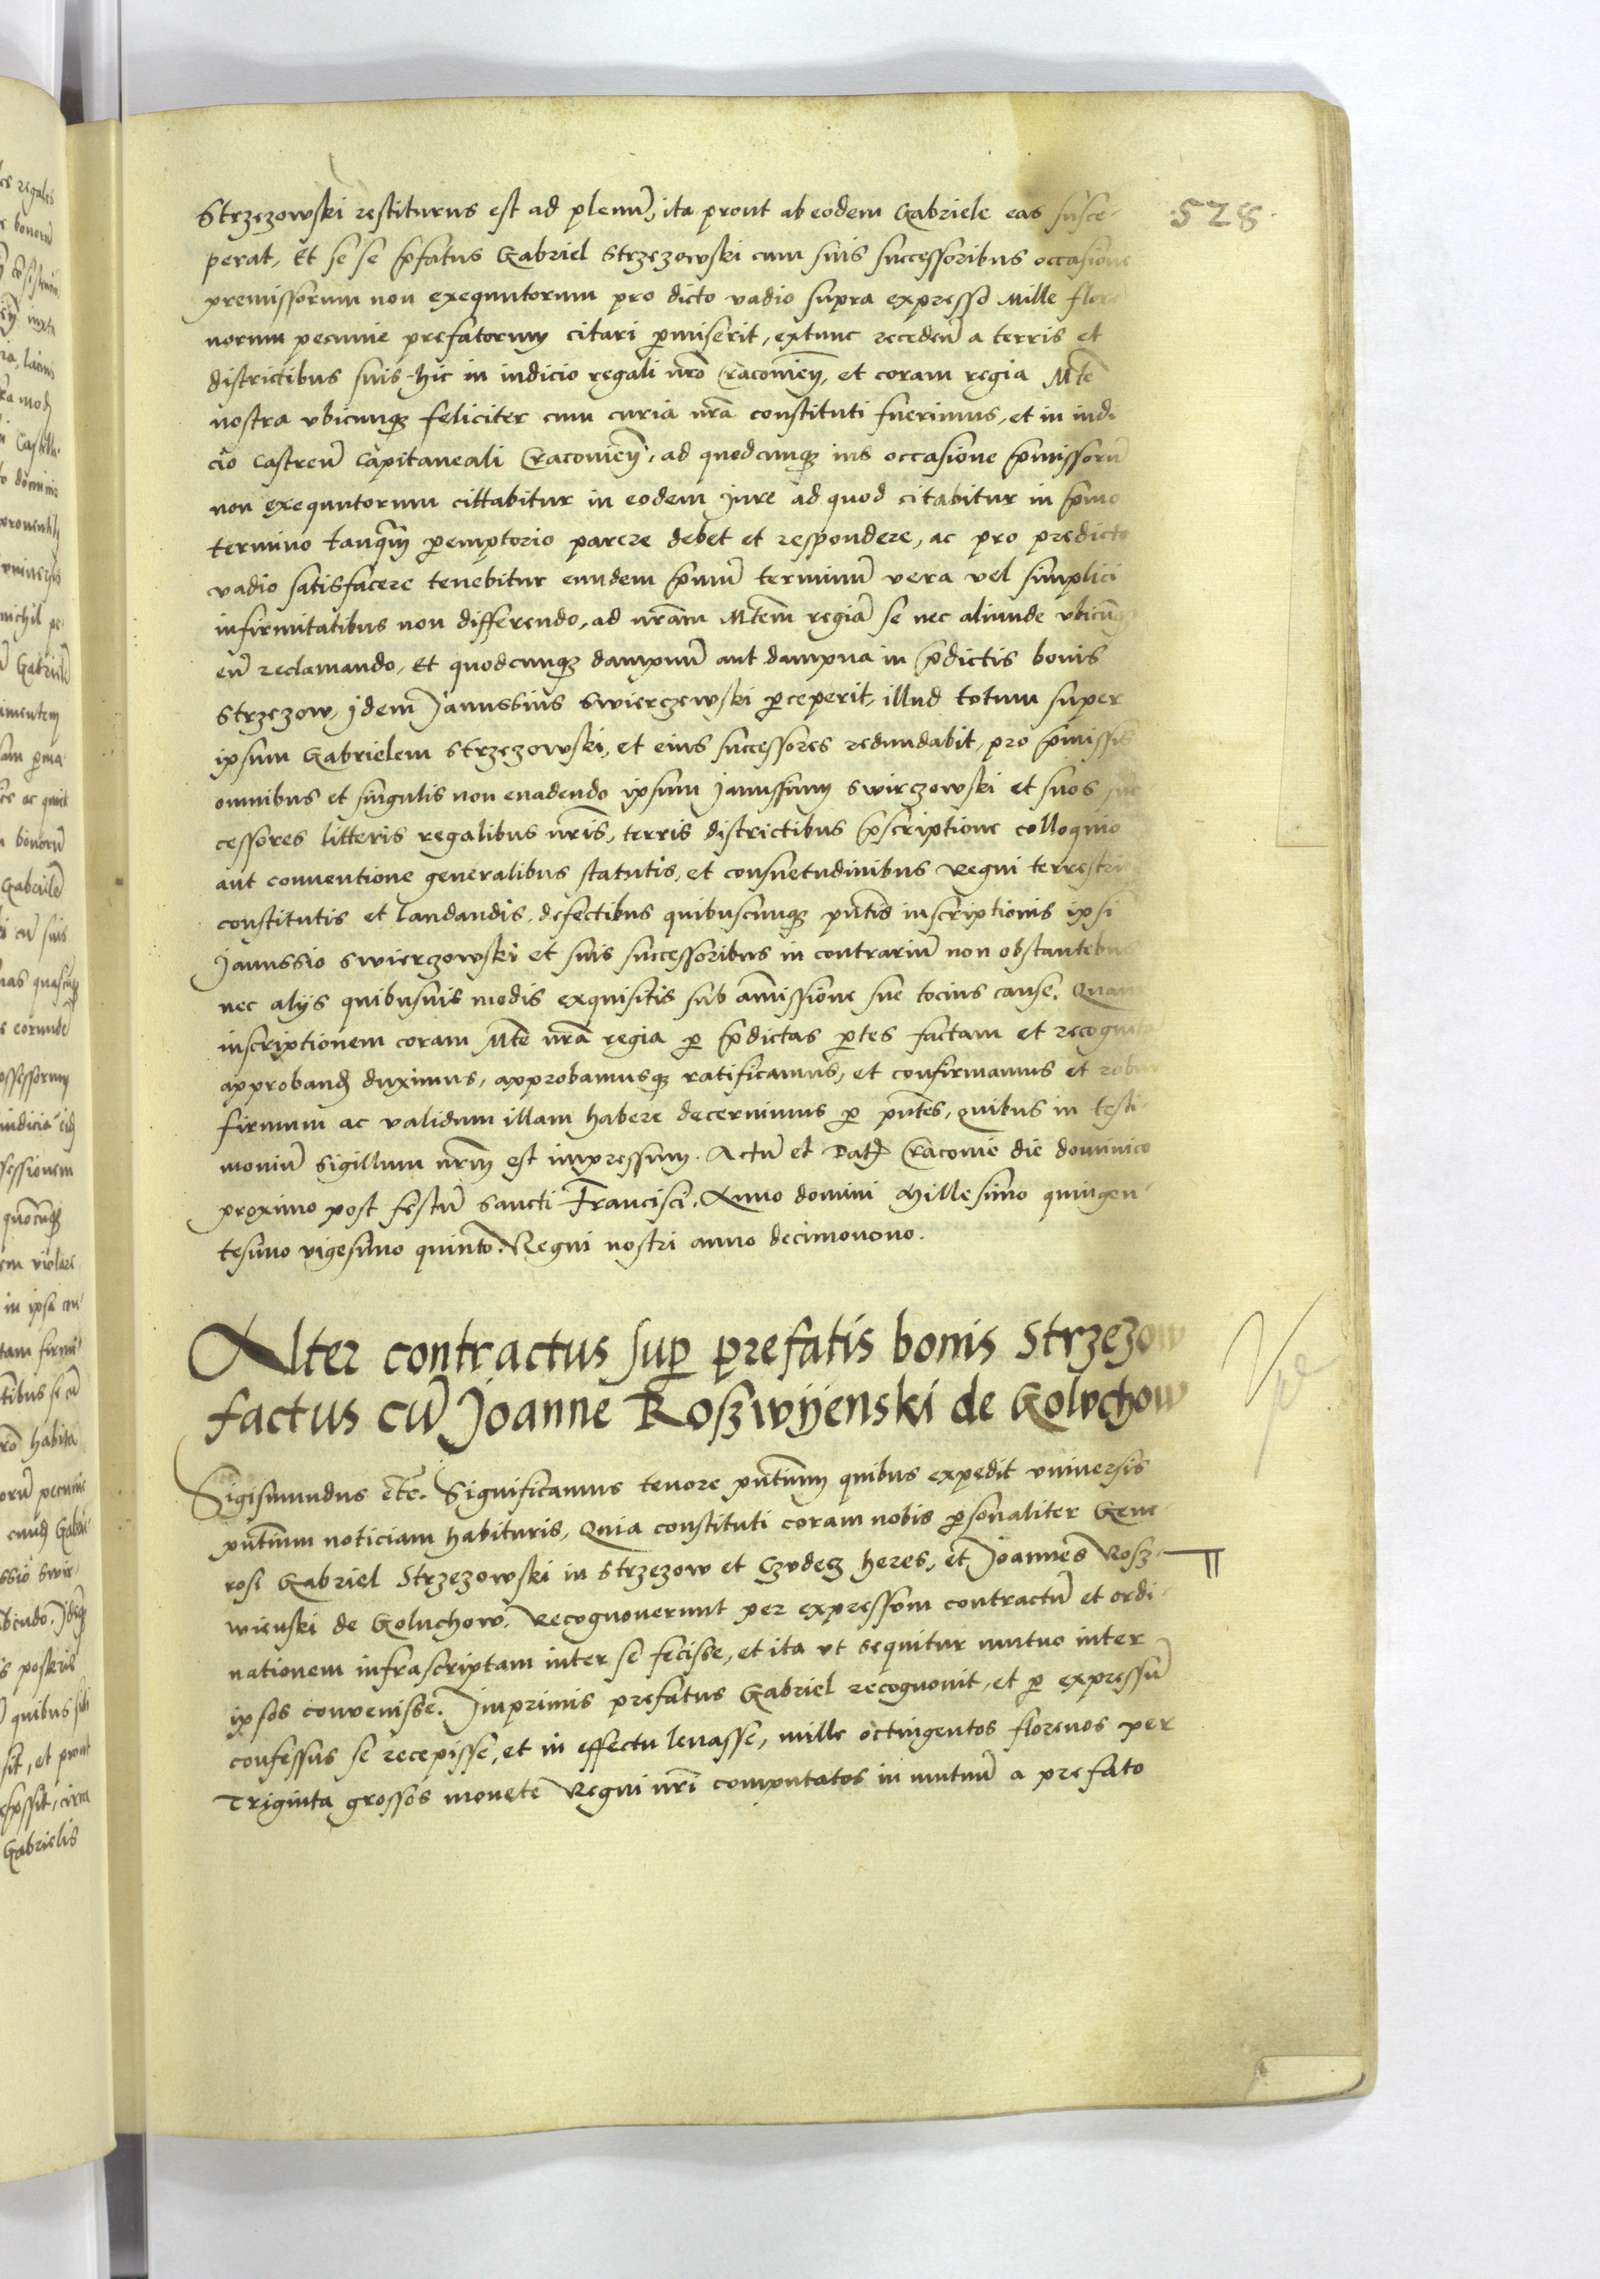 528
Strzezowski restiturus est ad plenũ, ita prout ab eodem Gabriele eas susce-
perat, Et se se p̃fatus Gabriel Strzezowski cum suis successoribus occasione
premissorum non exequutorum pro dicto vadio supra expresso Mille flore
norum pecunie prefatorum citari p̱miserit, extunc recedeñ a terris et
districtibus suis hic in iudicio regali nr̃o Cracouieñ, et coram regia Mte
nostra vbicunqꝫ feliciter cum curia nrã constituti fuerimus, et in iudi
cio castreñ Capitaneali Cracouieñ, ad quodcunqꝫ ius occasione p̃missorũ
non exequutorum cittabitur in eodem iure ad quod citabitur in p̃mo
termino tanq̃m p̱emptorio parere debet et respondere, ac pro predicto
vadio satisfacere tenebitur eundem p̃mũ terminũ vera vel simplici
infirmitatibus non differendo, ad nrãm Mtem regiã se nec aliunde vbicũqꝫ
eũ reclamando, Et quodcunqꝫ dampnũ aut dampna in p̃dictis bonis
Strzezow, idem Janussius Swierczewski p̱ceperit, illud totum super
ipsum Gabrielem Strzezowski, et eius successores redundabit, pro p̃missis
omnibus et singulis non euadendo ipsum Janussium Swirczowski et suos suc
cessores litteris regalibus nrĩs, terris districtibus p̃scriptione colloquio
aut conuentione generalibus statutis, et consuetudinibus Regni terrestri
constitutis et laudandis, defectibus quibuscunqꝫ pñtis inscriptionis ipsi
Janussio Swierczowski et suis successoribus in contrariũ non obstantebus
nec alijs quibusuis modis exquisitis sub amissione sue tocius cause. Quam
inscriptionem coram Mte nrã regia p̱ p̃dictas p̱tes factam et recognita
approband̃ duximus, approbamusqꝫ ratificamus, et confirmamus et robur
firmum ac validum illam habere decernimus p̱ pñtes, quibus in testi-
moniũ sigillum nrm̃ est impressum. Actũ et Dat̃ Cracouie die dominico
proximo post festũ Sancti Francisci. Anno domini Millesimo quingen-
tesimo vigesimo quinto. Regni nostri anno decimonono.
Alter contractus sup̱ prefatis bonis Strzezow
factus cũ Joanne Roszwyenski de Goluchow
Sigismundus etc̃. Significamus tenore pñtium quibus expedit vniuersis
pñtium noticiam habituris, Quia constituti coram nobis p̱sonaliter Gene-
rosi Gabriel Strzezowski in Strzezow et Czudecz heres, et Joannes Rosz-
wienski de Goluchow, Recognouerunt per expressum contractũ et ordi-
nationem infrascriptam inter se fecisse, et ita vt sequitur mutuo inter
ipsos conuenisse. Inprimis prefatus Gabriel recognouit, et p̱ expressũ
confessus se recepisse, et in effectu leuasse, mille octingentos florenos per
Triginta grossos monete Regni nrĩ computatos in mutuũ a prefato